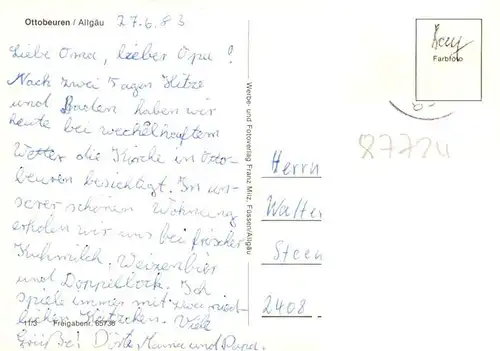 Ottobeuren / Allgäu 27.6.83
Liebe Oma, lieber Opa!
Nach zwei Tagen Hitze
und Baden haben wir
heute bei wechelhaftem
Wetter die Kirche in Otto-
beuren besichtigt. In un-
serer schönen Wohnung
erholen wir uns bei frischer
Kuhmilch, Weizenbier
und Doppelbock. Ich
spiele immer mit zwei nied-
lichen Kätzchen. Viele
11/3 Freigabenr. 65736
Grüße! Dörte, Mama und Papa.
Werbe- und Fotoverlag Franz Milz, Füssen/Allgäu
Farbfoto
87724
Herrn
Walter
Steen
2408